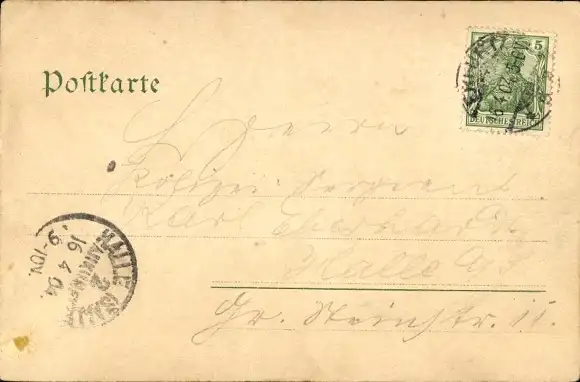 Postkarte
5
DEUTSCHES REICH
Herrn
Polizei Sergeant
Karl Eberhardt
Halle a/S
Gr. Steinstr. 11.
HALLE (SAALE)
2
16 4 04
9-10V.